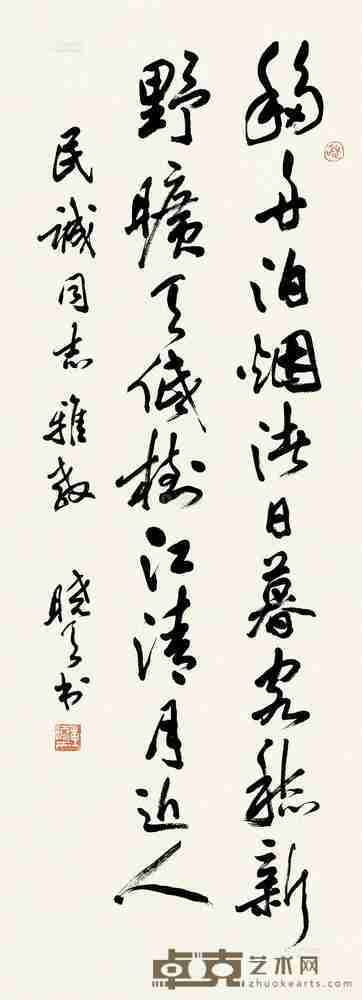 移舟泊烟渚日暮客愁新
野曠天低樹江清月近人
民诚同志雅教
晓天书
卓克艺术网
www.zhuokearts.com